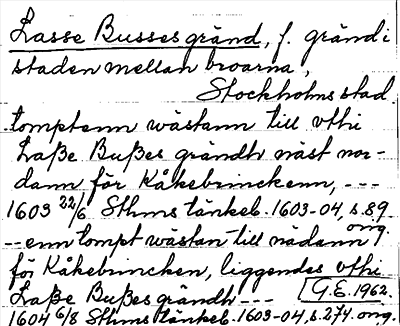 Lasse Busses gränd, f. gränd i
staden mellan broarna,
Stockholms stad.
tomptenn wästann till vthi
Laße Bußes grändh näst nor-
dann för Kåkebrinckenn, ---
1603 22/6 Sthms tänkeb. 1603-04, s. 89
orig.
-- enn tompt wästan till nådann
för Kåkebrincken, liggendes vthi
Laße Bußes grändh --- G.E. 1962.
1604 6/8 Sthms tänkeb. 1603-04, s. 274. orig.